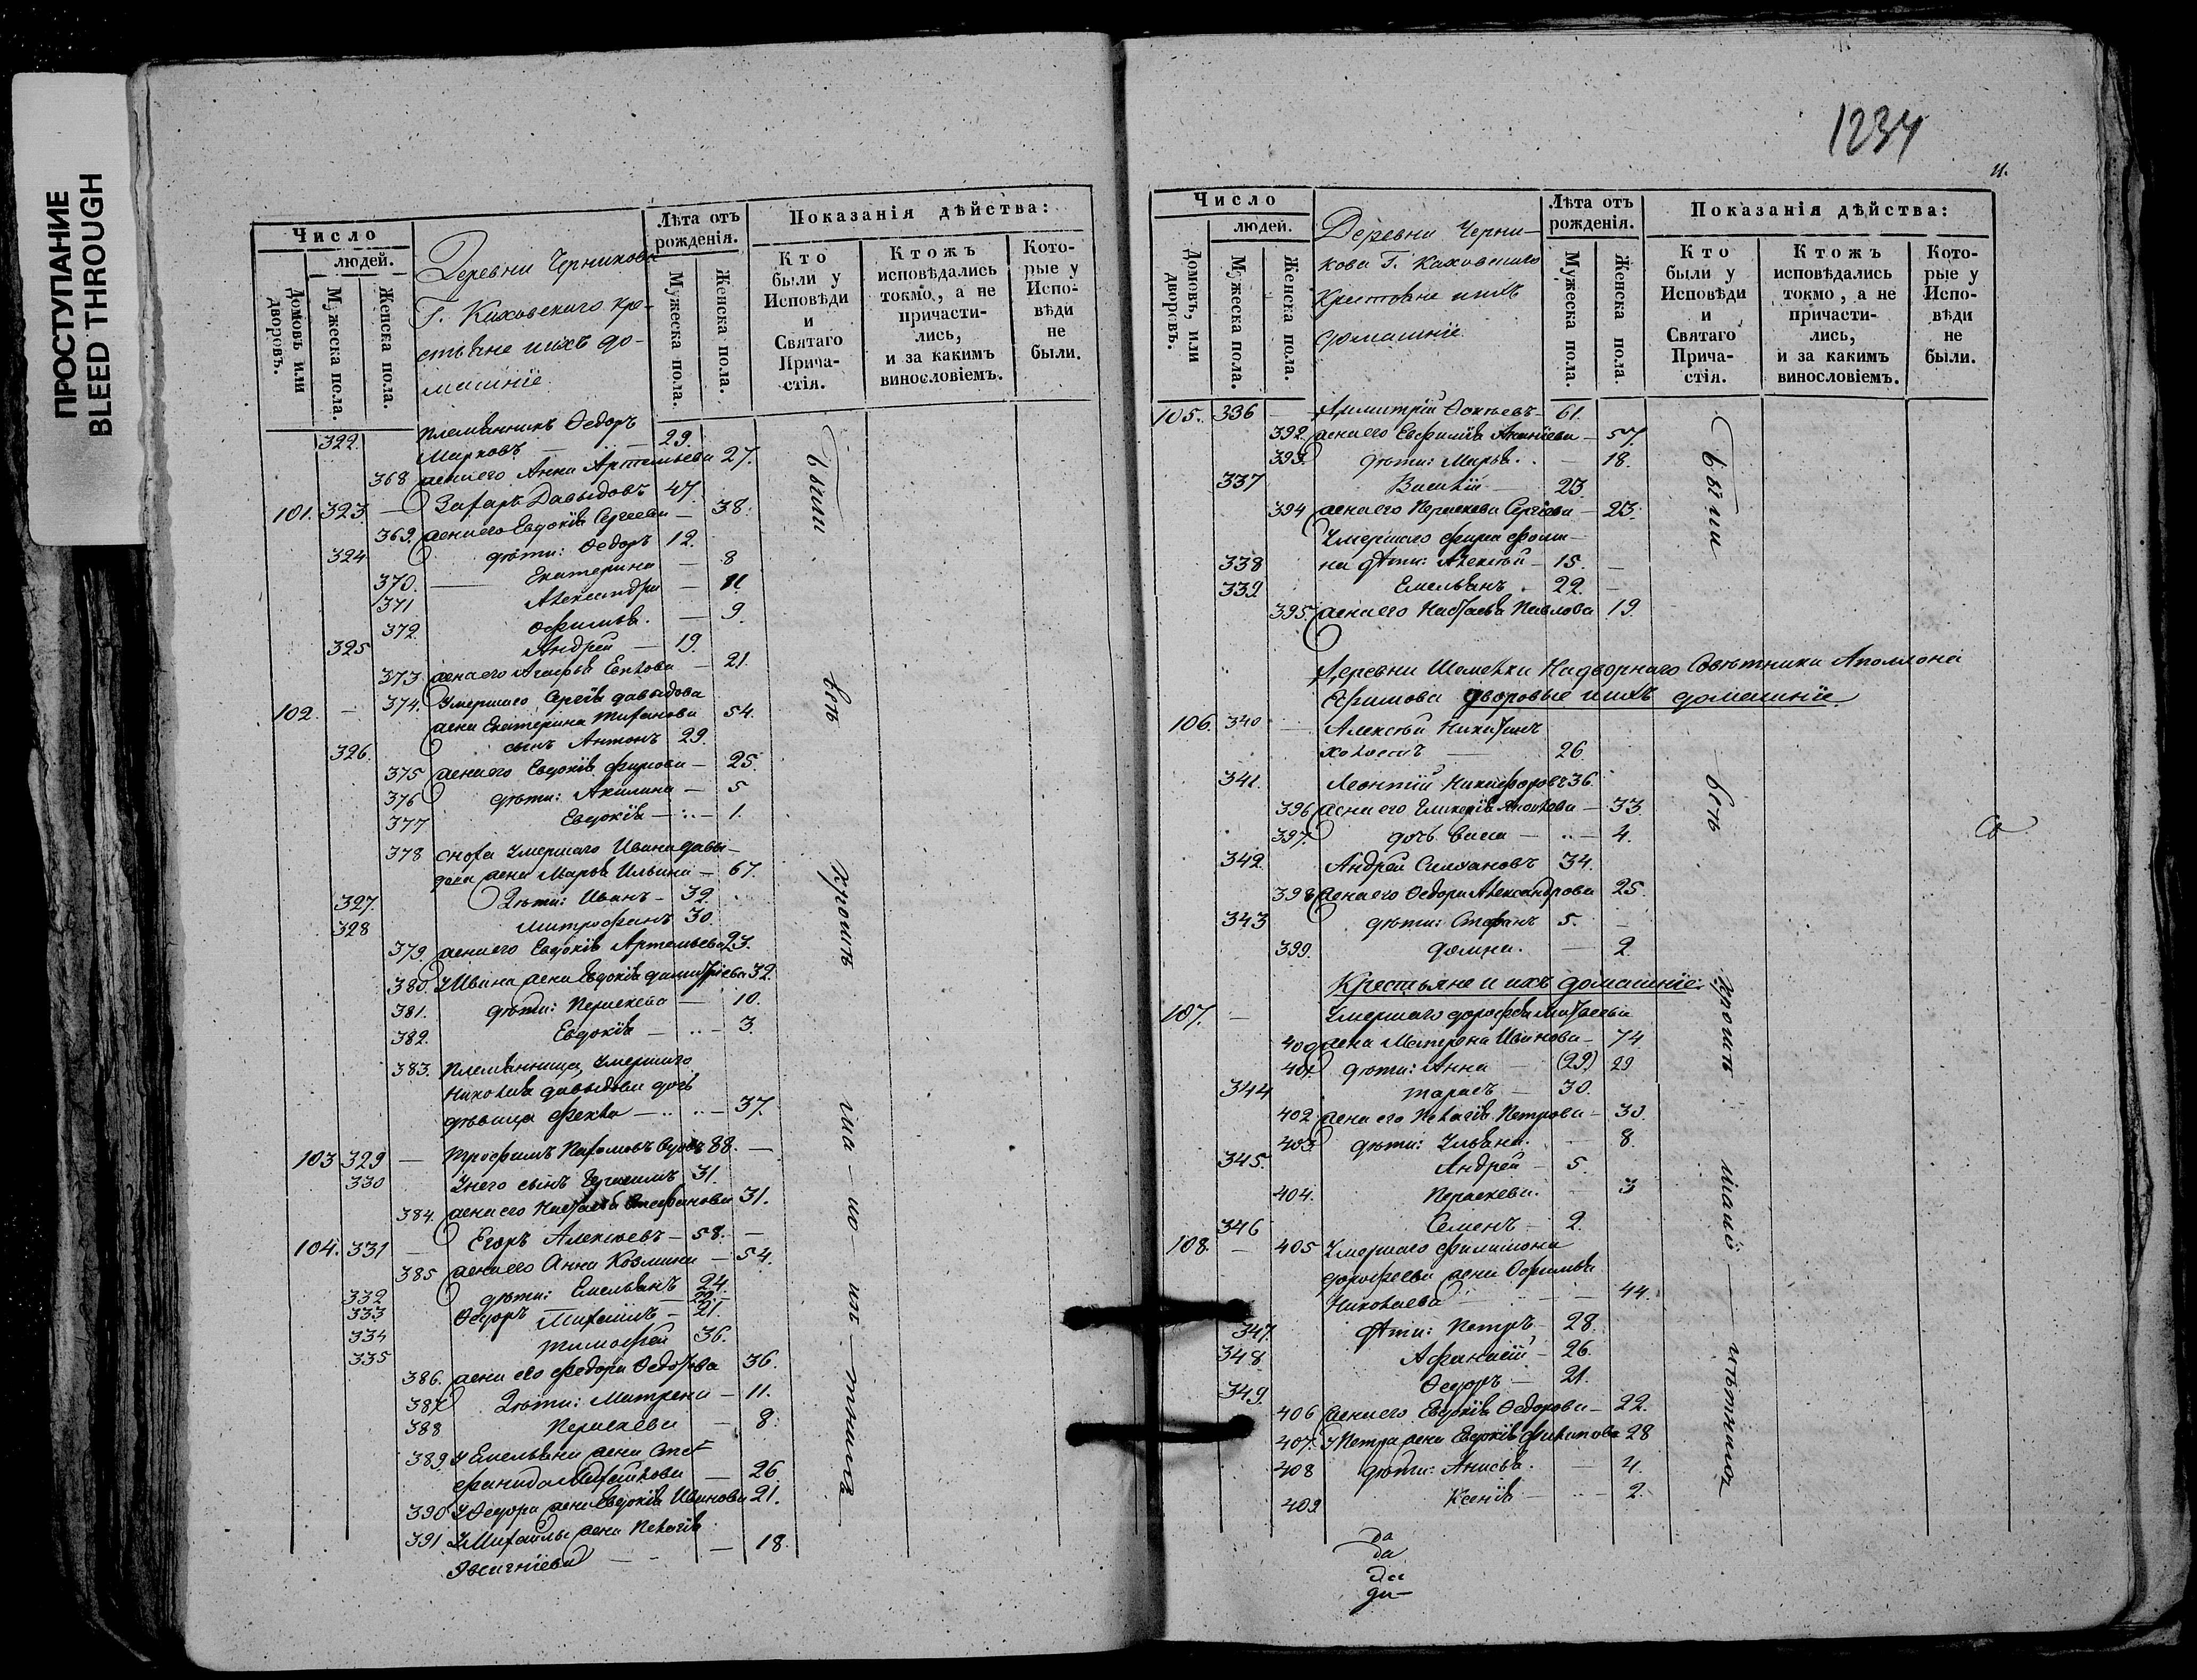 ПРОСТУПАНИЕ
BLEED THROUGH
Число
людей.
Домовъ или дворовъ.
Мужеска пола.
Женска пола.
Деревни Черникова
Г. Каховскаго кре-
стьяне и ихъ до-
машніе
Лѣта отъ
рожденія.
Мужеска пола.
Женска пола.
Показанія дѣйства:
Кто
были у
Исповѣди
и
Святаго
Прича-
стія.
Ктожъ
исповѣдались
токмо, а не
причасти-
лись,
и за какимъ
винословіемъ.
Кото-
рые у
Испо-
вѣди
не
были.
322. Племянникъ Ѳедоръ
Марковъ — 29.
368 жена его Анна Артемьева 27.
101. 323 — Захаръ Давыдовъ 47
369. жена его Евдокія Сергеева — 38.
324 дѣти: Ѳедоръ 12.
370. Екатерина — 8
371 Александра — 11.
372. Офимья. — 9.
325 Андрей — 19.
373 жена его Агафья — 21.
102. — 374. Умершаго Сергея Давыдова
жена Екатерина 54.
326. сынъ Антонъ 29.
375 жена его Евдокія — 25.
376 дѣти: Акилина — 5
377 Евдокія — 1.
378 сноха умершаго Ивана Давы-
дова жена Марья Ильина — 67.
327. Дѣти: Иванъ — 32.
328 Митрофанъ 30.
379. жена его Евдокія Артемьева 23.
380. У Ивана жена Евдокія Димитріева 32.
381. дѣти: Параскева — 10.
382. Евдокія — 3.
383. Племянница, умершаго
Николая Давыдова дочь
дѣвица Фекла — 37.
103 329 — Трофимъ Пахомовъ 88. —
330 У него сынъ 31.
384. жена его Настасья Стефанова 31.
104. 331 — Егоръ Алексѣевъ — 58. —
385 жена его Анна Козмина — 54.
332 дѣти: Емельянъ 24.
333 Ѳедоръ 22
334 Михаилъ — 21
335 Тимофей 36.
386. жена его Федора Федотова 36.
387 Дѣти: Матрена — 11.
388 Параскева — 8.
389. У Емельяна жена Сте-
фанида Михайлова — 26.
390 У Ѳедора жена Евдокія Иванова 21.
391 У Михайлы жена Пелагія
— 18.
были
вси
кромѣ
1234
11.
Число
людей.
Домовъ, или дворовъ.
Мужеска пола.
Женска пола.
Деревни Черни-
кова Г. Каховскаго
Крестьяне и ихъ
домашніе
Лѣта отъ
рожденія.
Мужеска пола.
Женска пола.
Показанія дѣйства:
Кто
были у
Исповѣди
и
Святаго
Прича-
стія.
Ктожъ
исповѣдались
токмо, а не
причасти-
лись,
и за какимъ
винословіемъ.
Кото-
рые у
Испо-
вѣди
не
были.
105. 336 — Димитрій 61.
392. жена его Евфимія Ананіева — 57.
393. дѣти: Марья. — 18.
337 Василій — 23
394 жена его Параскева Сергіева — 23.
Умершаго Фоми-
338 на дѣти: Алексѣй — 15. —
339 Емельянъ. — 22. —
395. жена его Настасья Павлова 19.
Деревни Шемелки Надворнаго Совѣтника Аполлона
Ефимова дворовые и ихъ домашніе
106. 340 — Алексѣй Никитинъ
холостъ — 26.
341. Леонтій Никифоровъ 36.
396 жена его Гликерія — 33.
397. дочь Васса — 4.
342. Андрей Силуановъ 34.
398 жена его Ѳедора Александрова 25.
343 дѣти: Стефанъ 5. —
399. Домна. — 2.
Крестьяне и ихъ домашніе.
107. — Умершаго Дорофея Матвеева
400 жена Матрена Иванова — 74
401 дѣти: Анна — (29) 29
344 Тарасъ — 30.
402 жена его Пелагія Петрова — 30.
403 дѣти: Ульяна. — 8.
345. Андрей — 5.
404. Параскева. — 3
346 Семенъ — 2.
108. — 405 Умершаго Филимона
Дорофеева жена Офимья
Николаева — 44.
347. дѣти: Петръ — 28.
348 Афанасій — 26.
349. Ѳедоръ — 21.
406 жена его Евдокія Ѳедорова — 22.
407. У Петра жена Евдокія Филипова 28
408 дѣти: Анисья. — 4.
409 Ксенія — 2.
были
вси
кромѣ
да
да
да
да—